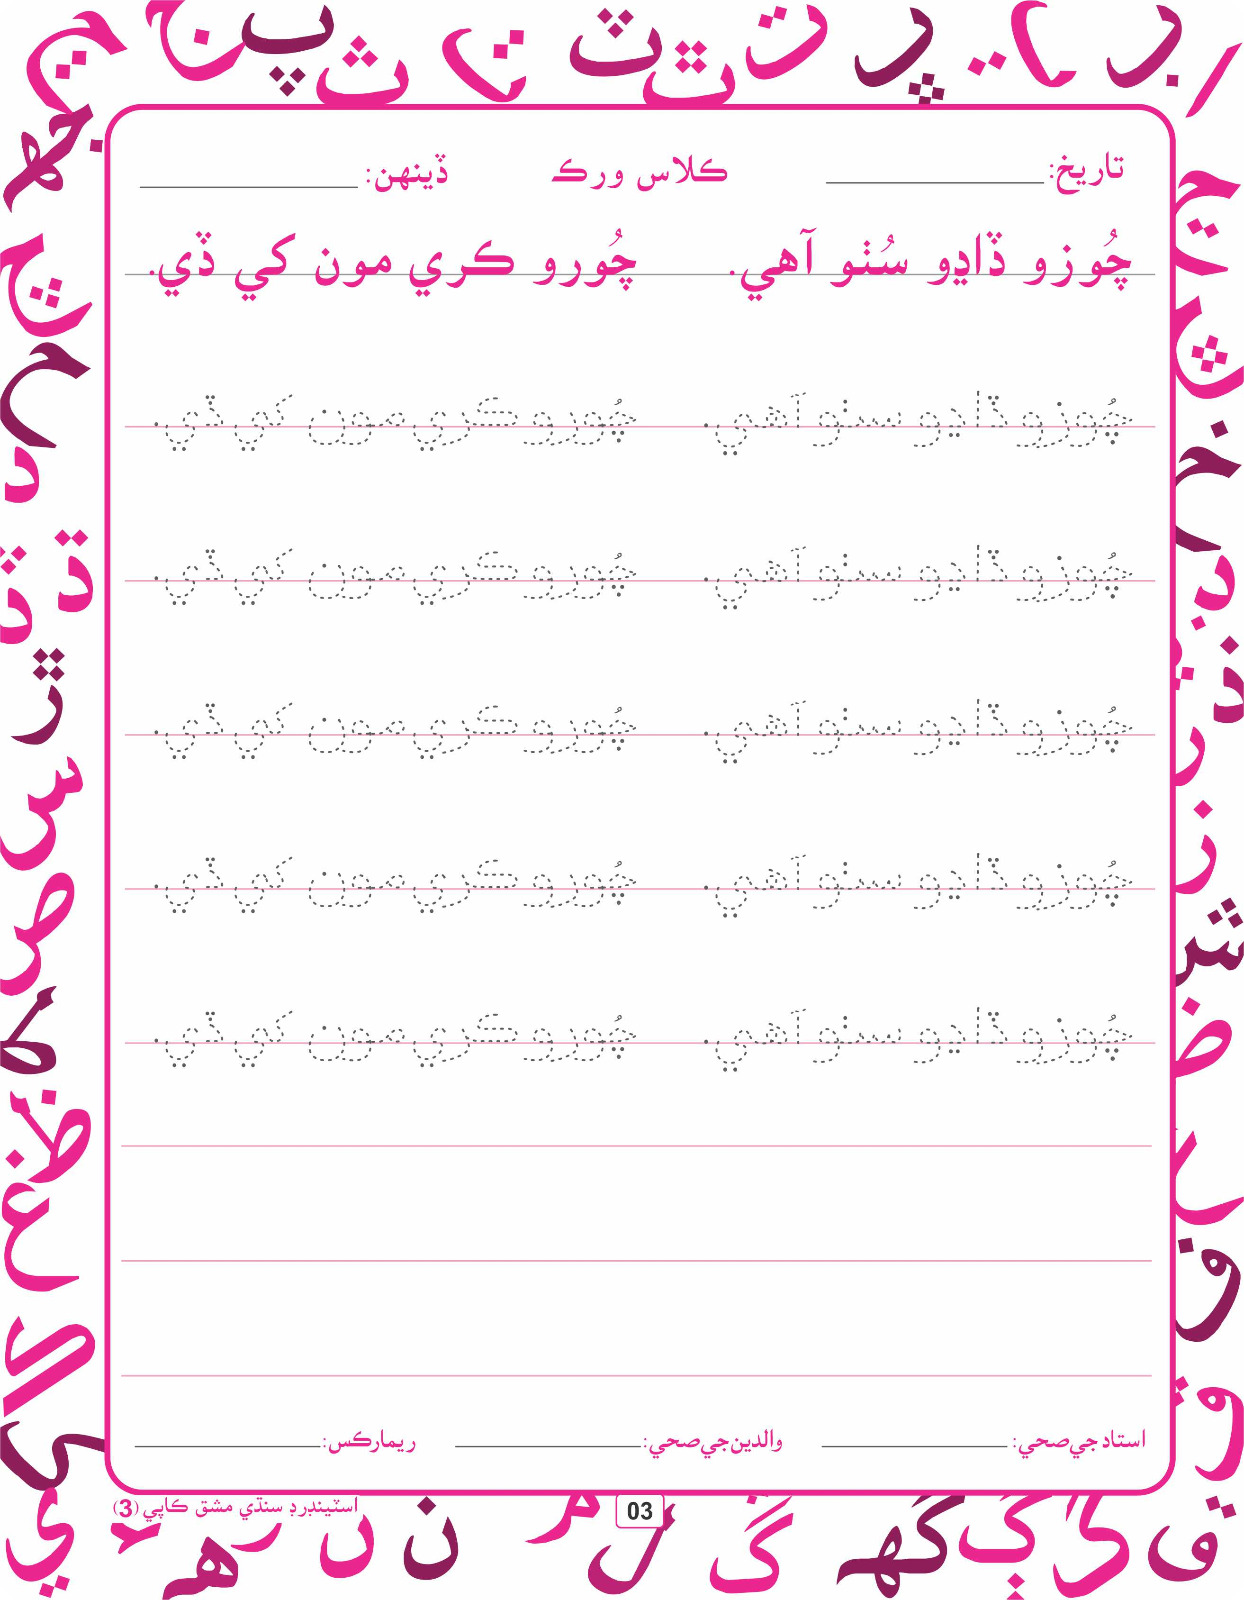 تاريخ: ڪلاس ورڪ ڏينهن:
چُوزو ڏاڍو سُٺو آهي. چُورو ڪري مون کي ڏي.
چُوزو ڏاڍو سٺو آهي. چُورو ڪري مون کي ڏي.
چُوزو ڏاڍو سٺو آهي. چُورو ڪري مون کي ڏي.
چُوزو ڏاڍو سٺو آهي. چُورو ڪري مون کي ڏي.
چُوزو ڏاڍو سٺو آهي. چُورو ڪري مون کي ڏي.
چُوزو ڏاڍو سٺو آهي. چُورو ڪري مون کي ڏي.
استاد جي صحي: والدين جي صحي: ريمارڪس:
03 اسٽينڊرڊ سنڌي مشق ڪاپي (3)